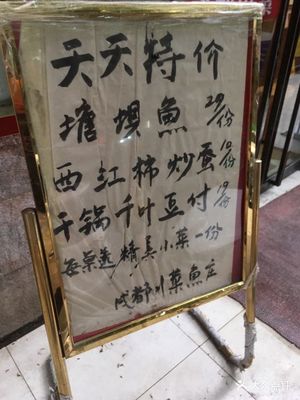 天天特价
塘坝魚 29/份
西江柿炒蛋 8/份
干锅千叶豆付 8/份
每桌送精美小菜一份
成都川菜魚庄